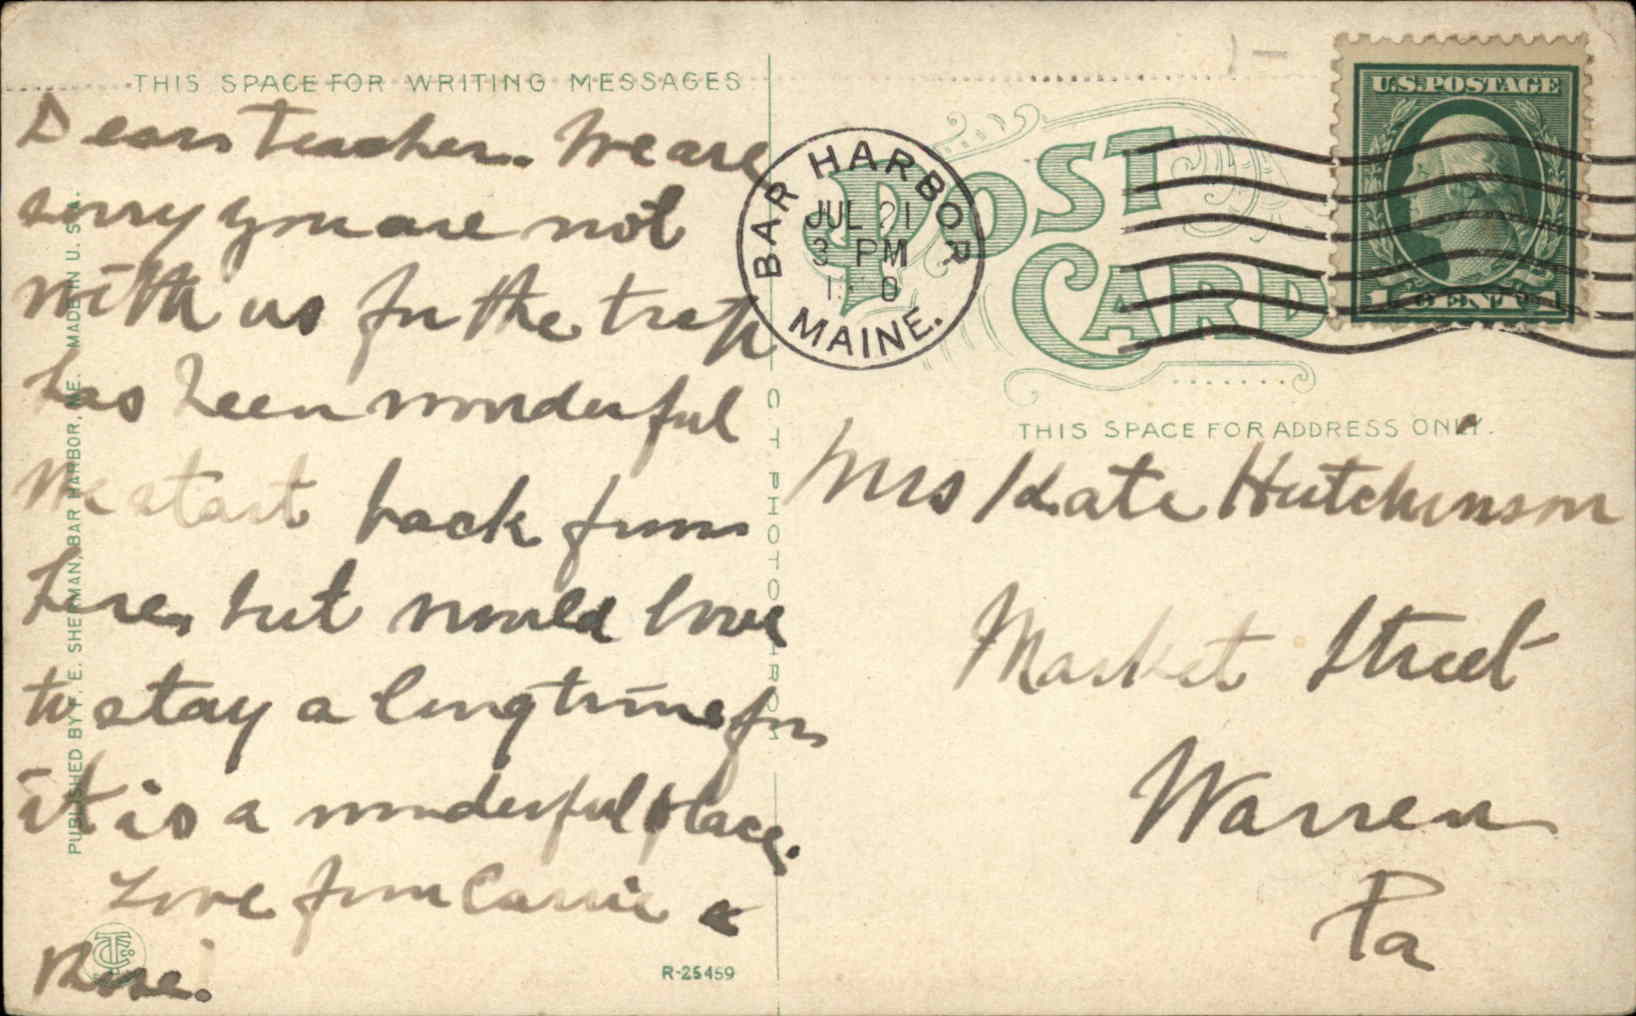 THIS SPACE FOR WRITING MESSAGES
Dear teacher. We are
sorry you are not
with us for the trip
has been wonderful
We start back from
here, but would love
to stay a long time for
it is a wonderful place.
Love from Carrie &
Rose.
PUBLISHED BY F. E. SHERMAN, BAR HARBOR, ME. MADE IN U. S. A.
C T PHOTOCHROM
R-25459
BAR HARBOR
JUL 21
3 PM
MAINE.
POST
CARD
U.S. POSTAGE
1 CENT 1
THIS SPACE FOR ADDRESS ONLY.
Mrs Kate Hutchinson
Market Street
Warren
Pa